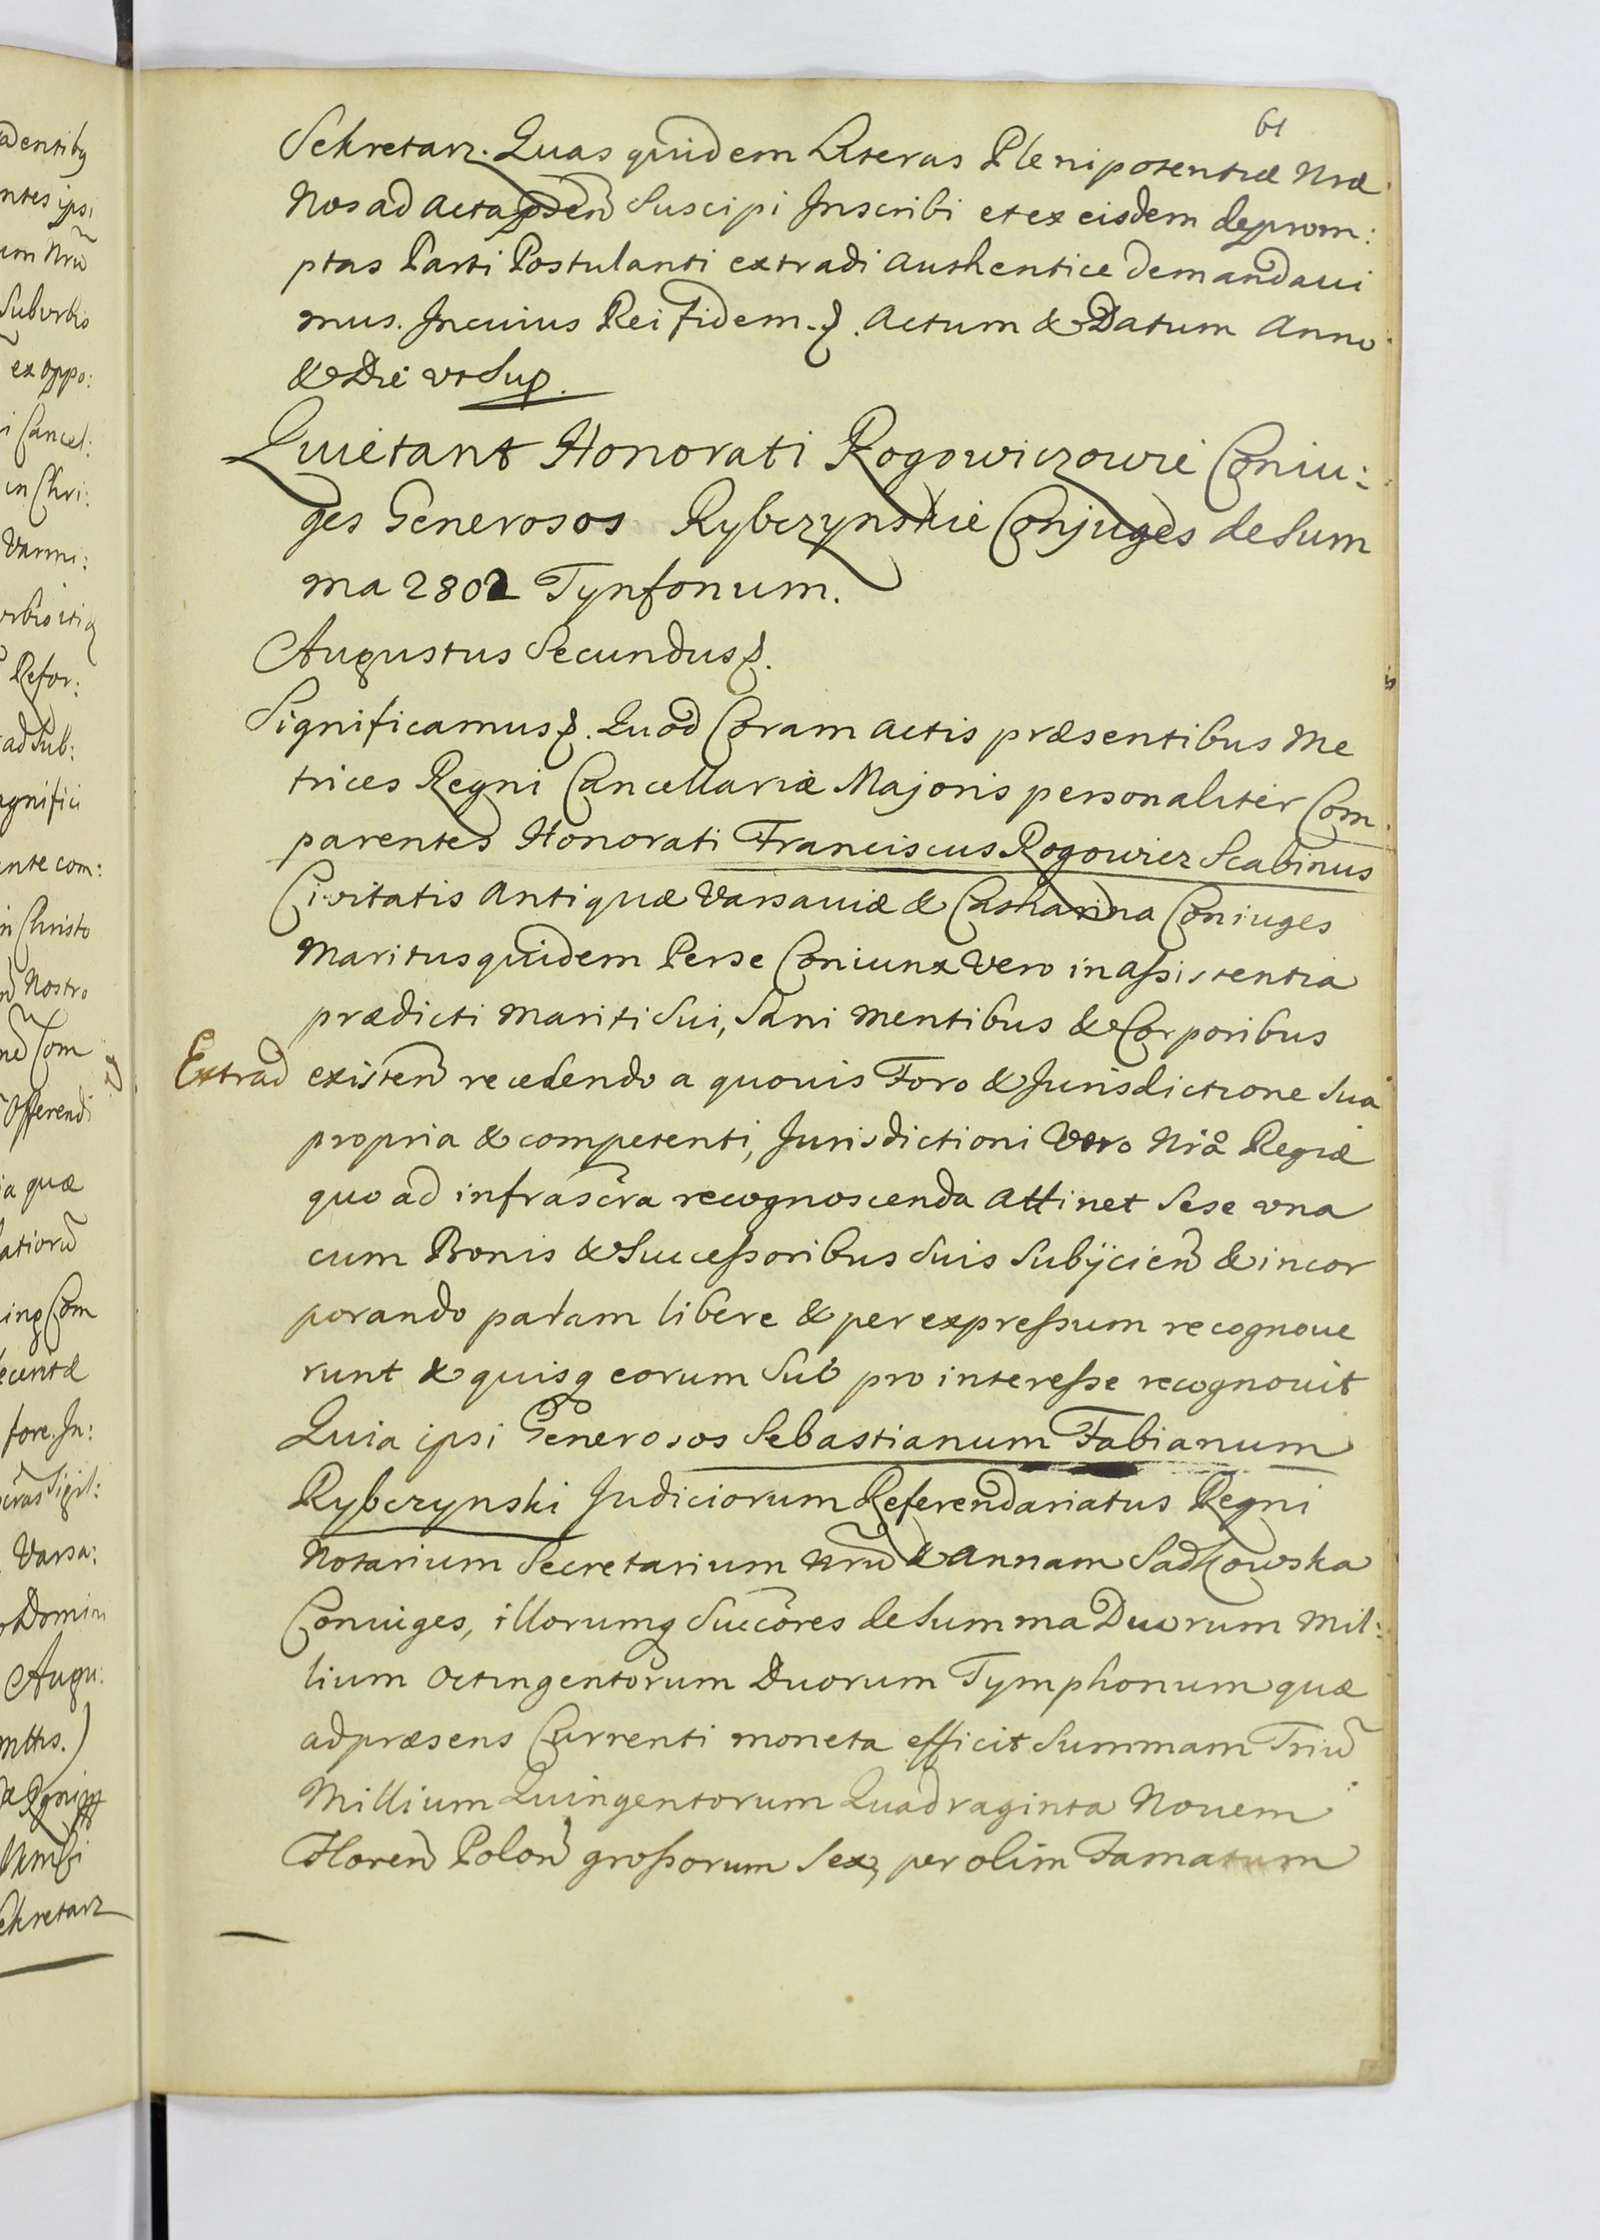 61
Sekretarz. Quas quidem Literas Plenipotentiæ Nræ
Nos ad Acta pñseñ Suscipi Inscribi et ex eisdem deprom:
ptas Parti Postulanti extradi Authentice demandaui
mus. In cuius Rei fidem. Actum & Datum Anno
& Die vt Sup.
Quietant Honorati Rogowiczowie Coniu:
ges Generosos Rybczynskie Conjuges de Sum
ma 2802 Tynfonum.
Augustus Secundus
Significamus. Quod Coram Actis præsentibus Me
trices Regni Cancellariæ Majoris personaliter Com
parentes Honorati Franciscus Rogowicz Scabinus
Civitatis Antiquæ Varsauiæ & Catharina Coniuges
Maritus quidem Per se Coniunx Vero in assistentia
prædicti Mariti Sui, Sani Mentibus & Corporibus
Extrad
existeñ recedendo a quouis Foro & Jurisdictione Sua
propria & competenti, Jurisdictioni Vero Nrã Regiæ
quo ad infrascra recognoscenda Attinet Sese vna
cum Bonis & Successoribus Suis Subÿcieñ & incor
porando palam libere & per expressum recognoue
runt & quisq eorum Sub pro interesse recognouit
Quia ipsi Generosos Sebastianum Fabianum
Rybczynski Judiciorum Referendariatus Regni
Notarium Secretarium Nrũ & Annam Sadkowska
Coniuges, illorumq Succores de Summa Duorum Mil:
lium Octingentorum Duorum Tymphonum quæ
ad præsens Currenti moneta efficit Summam Triũ
Millium Quingentorum Quadraginta Nouem
Floreñ Poloñ grossorum Sex, per olim Famatum